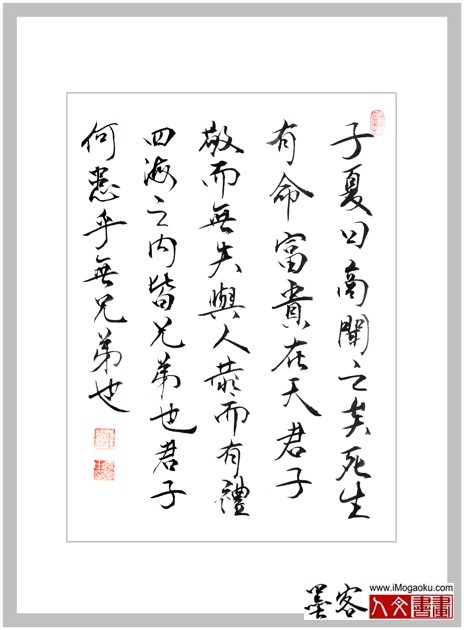 子夏曰商聞之矣死生
有命富貴在天君子
敬而無失與人恭而有禮
四海之內皆兄弟也君子
何患乎無兄弟也
墨客
www.iMogaoku.com
人文書畫